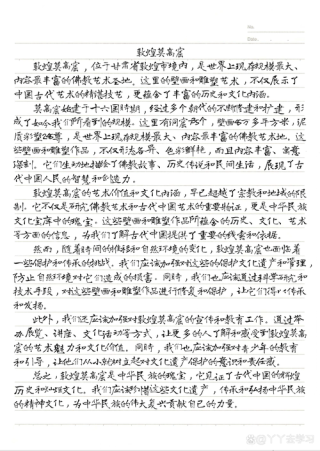 敦煌莫高窟
敦煌莫高窟，位于甘肃省敦煌市境内，是世界上现存规模最大、
内容最丰富的佛教艺术圣地。这里的壁画和雕塑艺术，不仅展示了
中国古代艺术的精湛技艺，更蕴含了丰富的历史和文化内涵。
莫高窟始建于十六国时期，经过多个朝代的不断修建和扩建，形
成了如今我们所看到的规模。这里有洞窟735个，壁画4.5万多平方米，泥
质彩塑2415尊，是世界上现存规模最大、内容最丰富的佛教艺术地。这
些壁画和雕塑作品，不仅形态各异、色彩鲜艳，而且内容丰富、寓意
深刻。它们生动地描绘了佛教故事、历史传说和民间生活，展现了古
代中国人民的智慧和创造力。
敦煌莫高窟的艺术价值和文化内涵，早已超越了宗教和地域的限
制。它不仅是研究佛教艺术和古代中国艺术的重要物证，更是中华民族
文化宝库中的瑰宝。这些壁画和雕塑作品所蕴含的历史、文化、艺术
等方面的信息，为我们了解古代中国提供了重要的线索和依据。
然而，随着时间的推移和自然环境的变化，敦煌莫高窟也面临着
一些保护和传承的挑战。我们应该加强对这些文化遗产的保护和管理，
防止自然环境对它们造成的损害。同时，我们也应该通过科学研究和
技术手段，对这些壁画和雕塑作品进行修复和保护，让它们得以传承
和发扬。
此外，我们还应该加强对敦煌莫高窟的宣传和教育工作。通过举
办展览、讲座、文化活动等方式，让更多的人了解和感受到敦煌莫高
窟的艺术魅力和文化价值。同时，我们也应该加强对青少年的教育
和引导，让他们从小就树立起对文化遗产保护的意识和责任感。
总之，敦煌莫高窟是中华民族的瑰宝，它见证了古代中国的辉煌
历史和灿烂文化。我们应该珍惜这些文化遗产，传承和弘扬中华民族
的精神文化，为中华民族的伟大复兴贡献自己的力量。